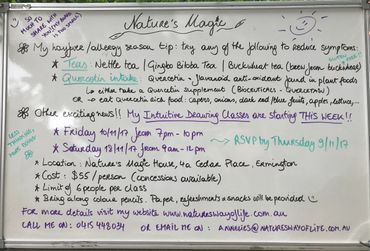 SO MUCH TO SHARE WITH YOU
Nature's Magic
My hayfever/allergy season tip: try any of the following to reduce symptoms:
* Teas: Nettle tea / Gingko Biloba Tea / Buckwheat tea (brew from buckwheat)
* Quercetin intake: Quercetin - flavonoid anti-oxidant found in plant foods
↳ either take a Quercetin supplement (Bioceuticals -
OR → eat quercetin rich food: capers, onions, dark red/blue fruits, apples, lettuce,...
Other exciting news!! My Intuitive Drawing Classes are starting THIS WEEK!!
LESS THINKING, MORE DOING
* Friday 10/11/17 from 7pm-10pm
* Saturday 18/11/17 from 9am-12pm
→ RSVP by Thursday 9/11/17
* Location: Nature's Magic House, 4a Cedar Place, Ermington
* Cost: $55/person (concessions available)
* Limit of 6 people per class
* Bring along colour pencils. Paper, refreshments & snacks will be provided
For more details visit my website www.natureswayoflife.com.au
CALL ME ON: 0415 448034 OR EMAIL ME ON: ANNELIES@NATURESWAYOFLIFE.COM.AU